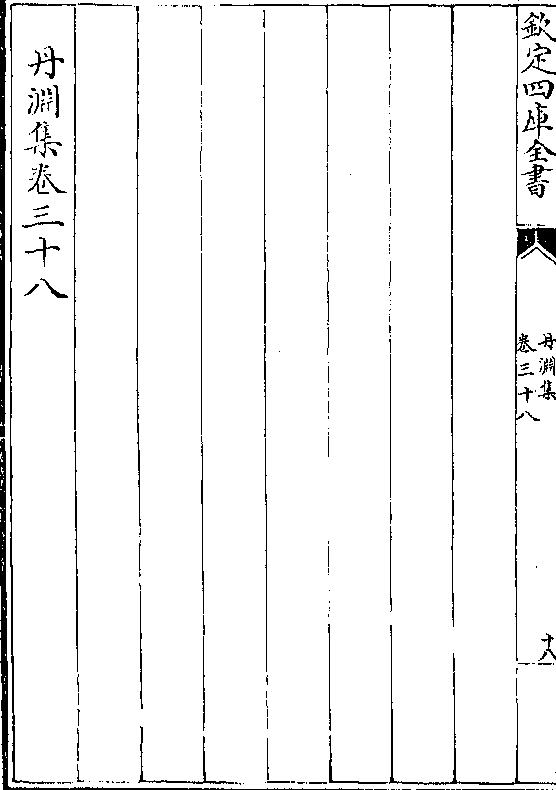 欽定四庫全書
丹淵集
卷三十八
十八
丹淵集卷三十八